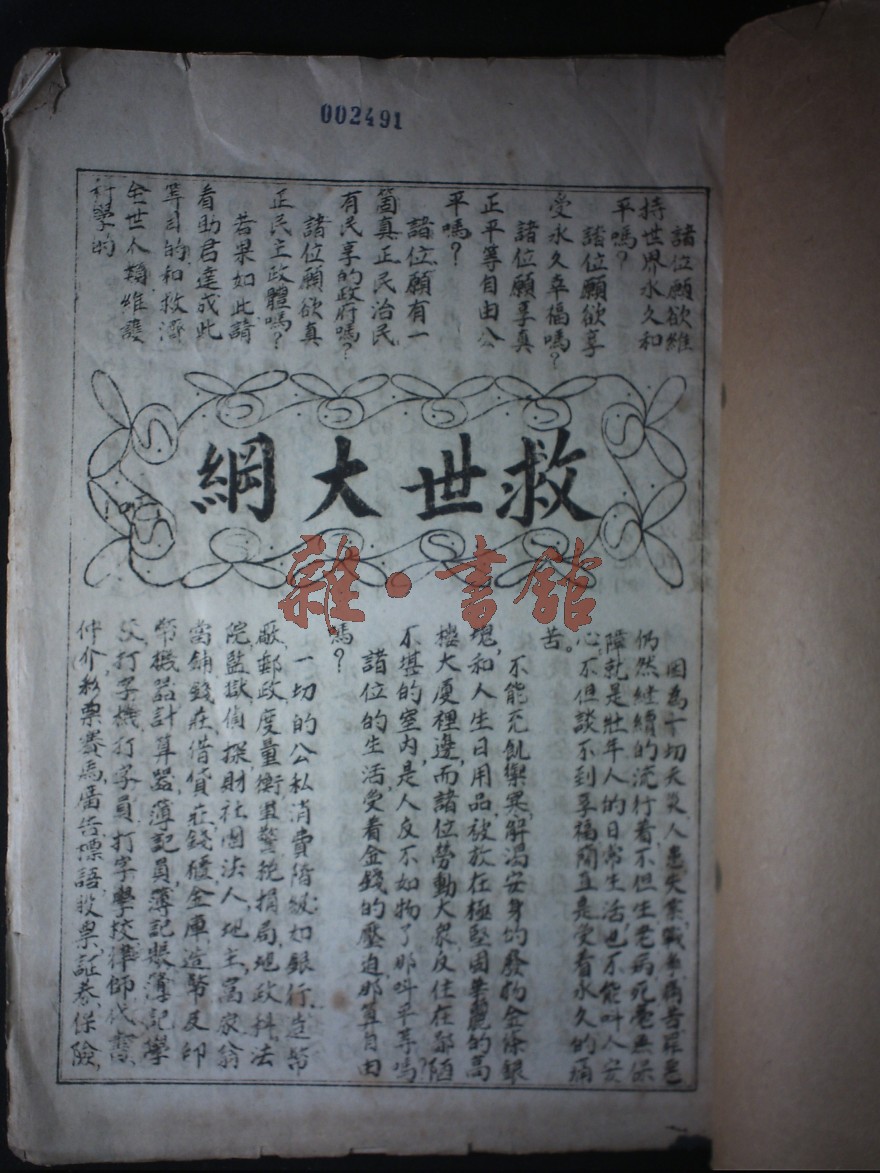 002491
諸位願欲維
持世界永久和
平嗎？
諸位願欲享
受永久幸福嗎？
諸位願享真
正平等自由公
平嗎？
諸位願有一
箇真正民治民
有民享的政府嗎？
諸位願欲真
正民主政體嗎？
若果如此請
看助君達成此
等目的和救濟
全世人類維護
科學的
救世大綱
雜·書館
因為一切天災人患失業戰爭痛苦罪惡
仍然繼續的流行着不但生老病死毫無保
障就是壯年人的日常生活也不能叫人安
心不但談不到享福簡直是受着永久的痛
苦。
不能充飢禦寒解渴安身的廢物金條銀
塊和人生日用品被放在極堅固華麗的高
樓大廈裡邊而諸位勞動大衆反住在鄙陋
不堪的室内是人反不如物了那叫平等嗎？
諸位的生活受着金錢的壓迫那算自由
嗎？
一切的公私消費階級如銀行造幣
厰郵政度量衡監警稅捐局地政科法
院監獄偵探財社團法人地主富家翁
當鋪錢莊借貸莊錢櫃金庫造幣及印
幣機器計算器簿記員簿記賬簿記學
校打字機打字員打字學校律師代書
仲介彩票賽馬廣告標語股票証券保險